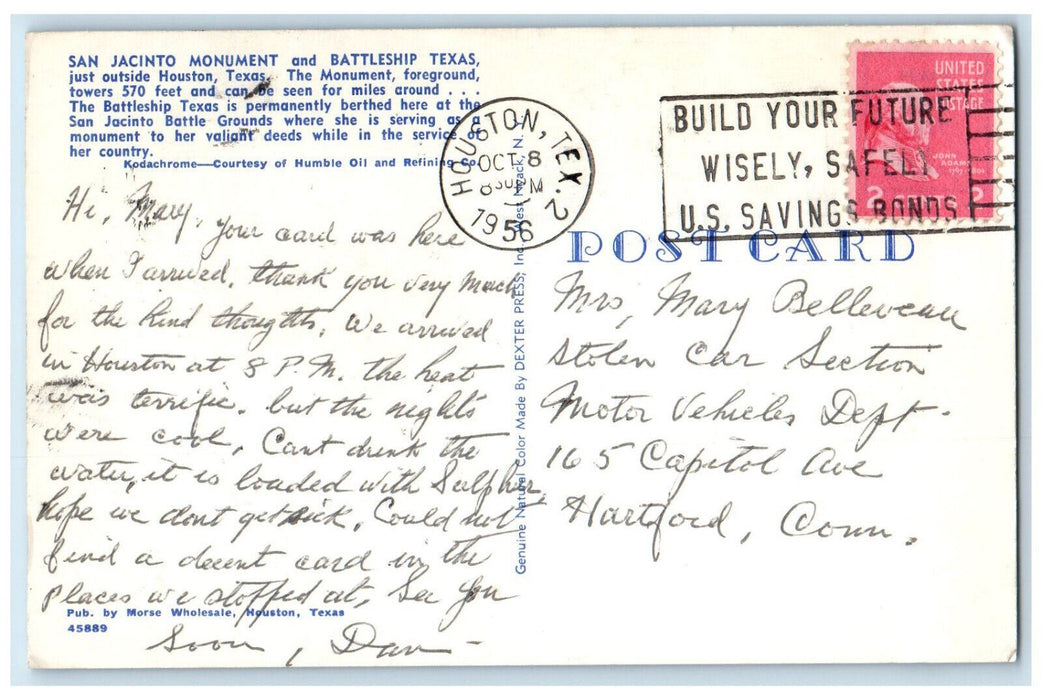 SAN JACINTO MONUMENT and BATTLESHIP TEXAS,
just outside Houston, Texas. The Monument, foreground,
towers 570 feet and can be seen for miles around . . .
The Battleship Texas is permanently berthed here at the
San Jacinto Battle Grounds where she is serving as a
monument to her valiant deeds while in the service of
her country.
Kodachrome—Courtesy of Humble Oil and Refining Co.
HOUSTON, TEX. 2
OCT 8
830PM
1956
BUILD YOUR FUTURE
WISELY, SAFELY
U.S. SAVINGS BONDS
UNITED
STATES
POSTAGE
JOHN
ADAMS
2 CENTS 2
POST CARD
Hi, Mary, Your card was here
when I arrived, thank you very much
for the kind thoughts. We arrived
in Houston at 8 P.M. the heat
was terrific. but the nights
were cool, Cant drink the
water, it is loaded with Sulpher,
hope we dont get sick. Could not
find a decent card in the
places we stopped at, See you
Soon, Dan
Pub. by Morse Wholesale, Houston, Texas
45889
Genuine Natural Color Made By DEXTER PRESS, Inc., West Nyack, N.
Mrs, Mary Belleveau
Stolen Car Section
Motor Vehicles Dept.
165 Capitol Ave
Hartford, Conn.